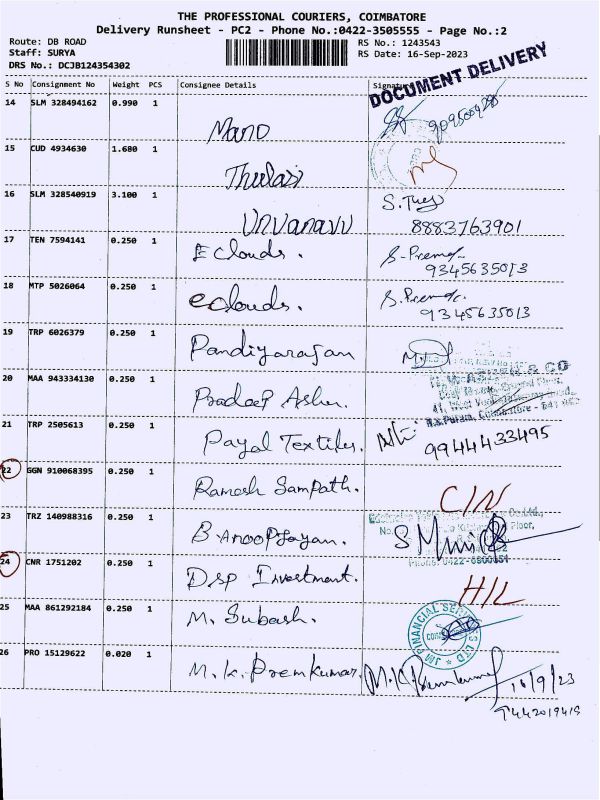 THE PROFESSIONAL COURIERS, COIMBATORE
Delivery Runsheet - PC2 - Phone No.:0422-3505555 - Page No.:2
Route: DB ROAD RS No.: 1243543
Staff: SURYA RS Date: 16-Sep-2023
DRS No.: DCJB124354302
DOCUMENT DELIVERY
S No Consignment No Weight PCS Consignee Details Signature
14 SLM 328494162 0.990 1 Mano
15 CUD 4934630 1.680 1 Thulasi
16 SLM 328540919 3.100 1 Unvanavu S. Thes
8883763901
17 TEN 7594141 0.250 1 E Clouds. S. Prema
9345635013
18 MTP 5026064 0.250 1 eclouds. S. Prema
9345635013
19 TRP 6026379 0.250 1 Pandiyarajan
20 MAA 943334130 0.250 1 Pradeep Asher.
21 TRP 2505613 0.250 1 Payal Textiles. 9944433495
22 GGN 910068395 0.250 1 Ramesh Sampath. C/N
23 TRZ 140988316 0.250 1 B Anoopjayan.
24 CNR 1751202 0.250 1 Dsp Investment. H/L
25 MAA 861292184 0.250 1 M. Subash. JM FINANCIAL SERVICES LTD
26 PRO 15129622 0.020 1 M.K. Premkumar. M.K. Premkumar 16/9/23